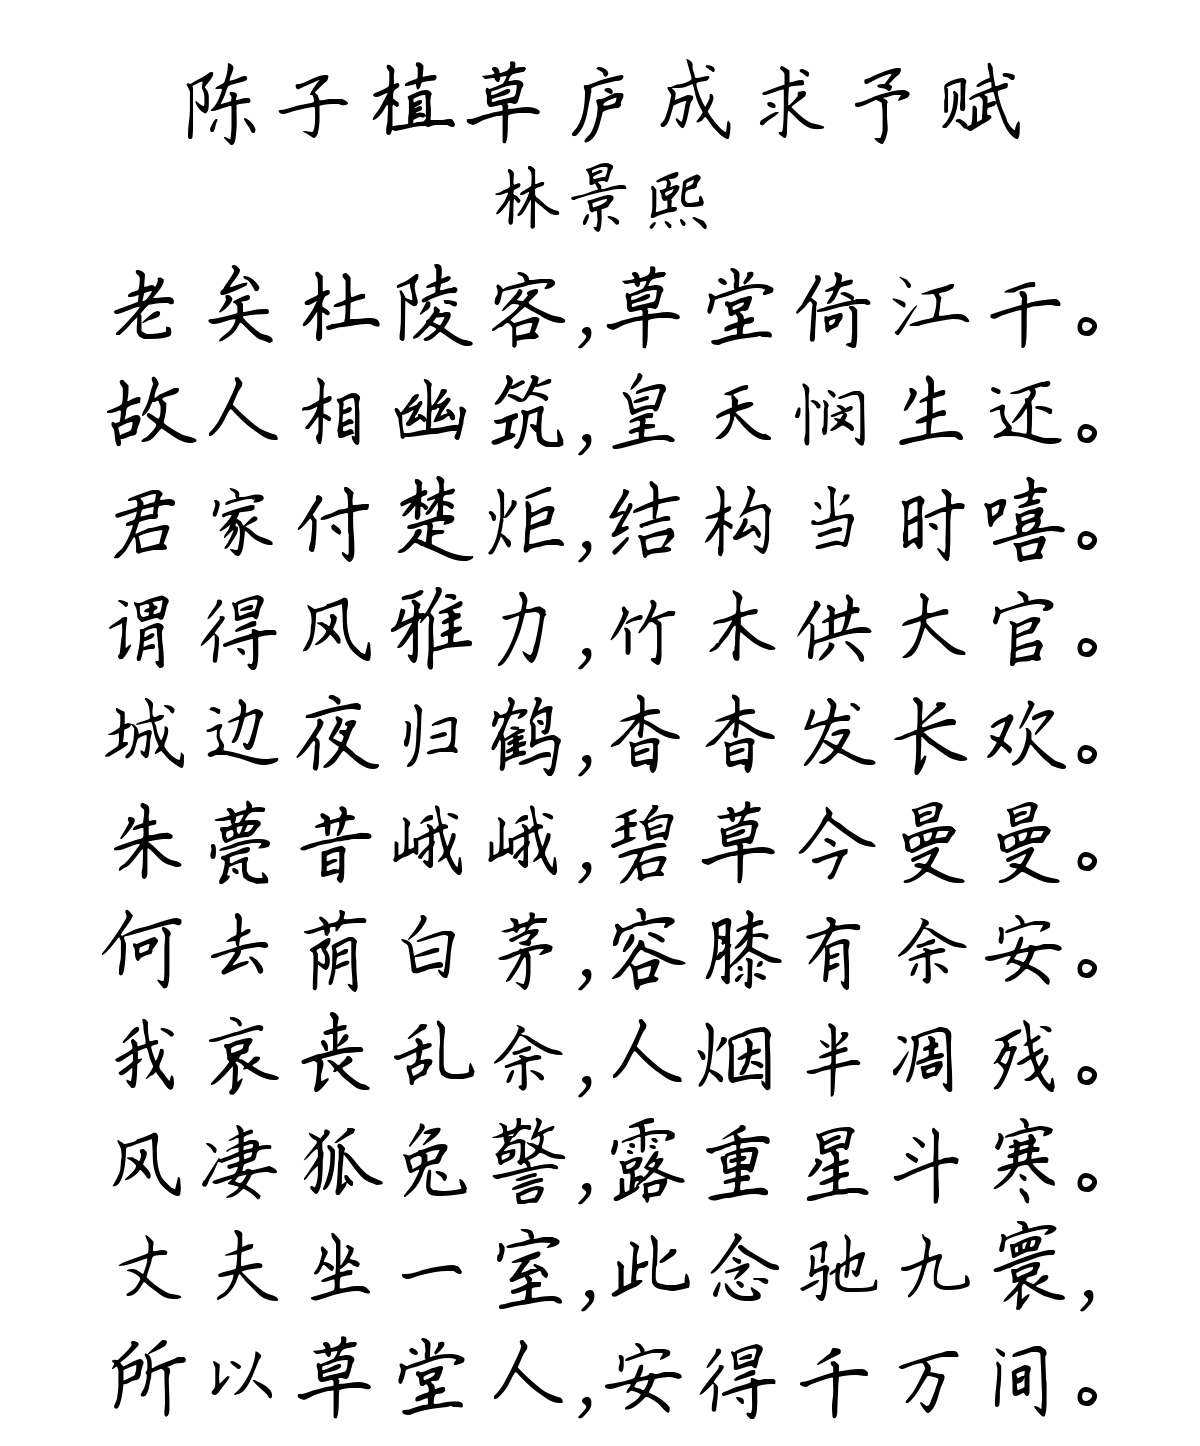 陈子植草庐成求予赋
林景熙
老矣杜陵客,草堂倚江干。
故人相幽筑,皇天悯生还。
君家付楚炬,结构当时嘻。
谓得风雅力,竹木供大官。
城边夜归鹤,杳杳发长欢。
朱甍昔峨峨,碧草今曼曼。
何去荫白茅,容膝有余安。
我哀丧乱余,人烟半凋残。
风凄狐兔警,露重星斗寒。
丈夫坐一室,此念驰九寰,
所以草堂人,安得千万间。